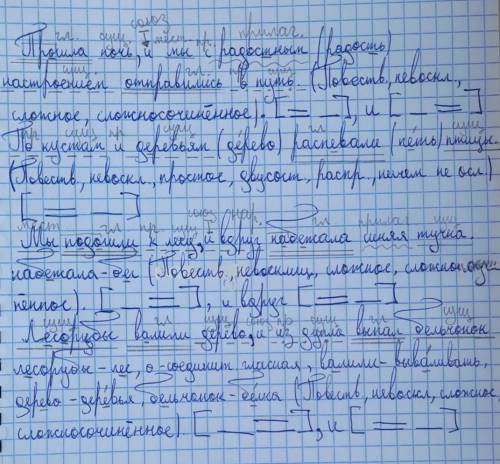 гл. сущ. союз мест. пр. прилаг.
Прошла ночь, и мы с радостным (радость)
сущ. гл. пр. сущ.
настроением отправились в путь (Повеств., невоскл.,
сложное, сложносочинённое). [== —], и [— ==]
пр. сущ. пр. сущ. гл. сущ.
По кустам и деревьям (дерево) распевали (петь) птицы.
(Повеств., невоскл., простое, двусост., распр., ничем не осл.)
[== —]
мест. гл. пр. сущ. союз нар. гл. прилаг. сущ.
Мы подошли к лесу, и вдруг набежала синяя тучка.
набежала - бег (Повеств., невосклиц., сложное, сложносочи
нённое). [— ==], и вдруг [== —]
сущ. гл. сущ. союз пр. сущ. гл. сущ.
Лесорубы валили дерево, и из дупла выпал бельчонок
лесорубы - лес, о - соединит. гласная, валили - вываливать,
дерево - деревья, бельчонок - белка (Повеств., невоскл., сложное,
сложносочинённое). [— ==], и [== —]